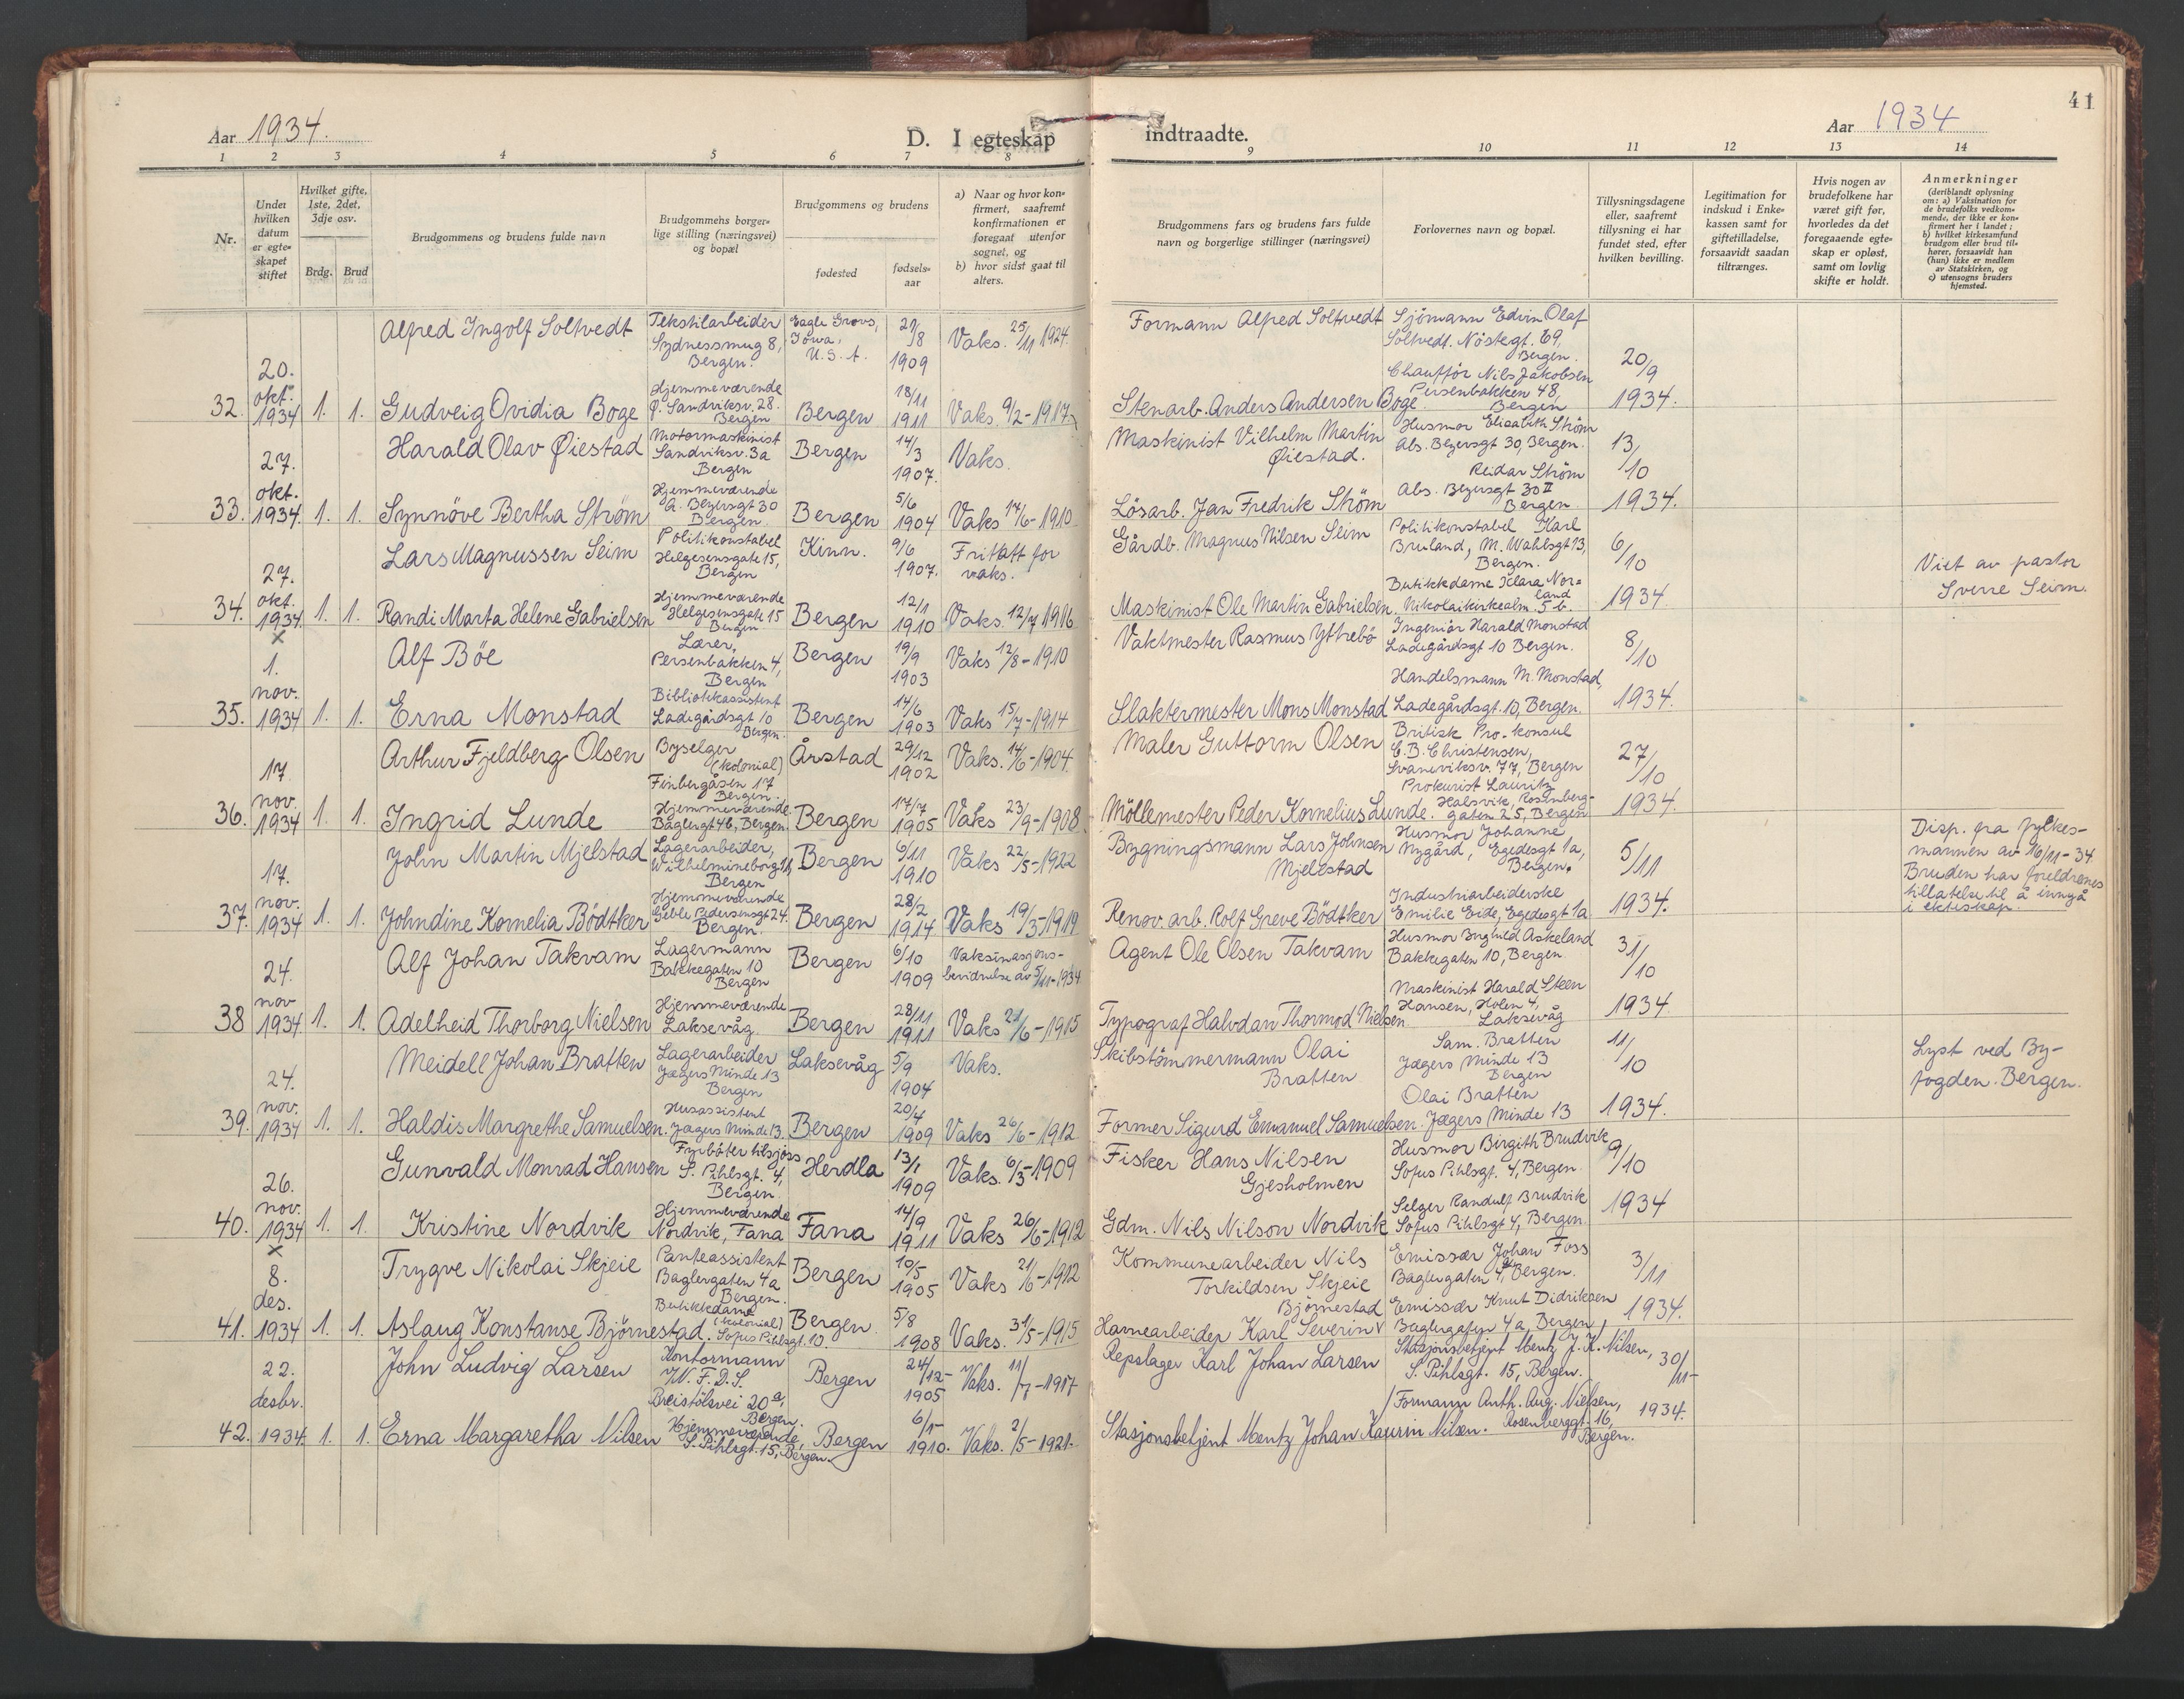 Aar 1934.
D. I egteskap
indtraadte.
Aar 1934
41
1 2 3 4 5 6 7 8 9 10 11 12 13 14
Nr.
Under hvilken datum er egteskapet stiftet
Hvilket gifte, 1ste, 2det, 3dje osv.
Brdg. Brud
Brudgommens og brudens fulde navn
Brudgommens borgerlige stilling (næringsvei) og bopæl
Brudgommens og brudens
fødested
fødselsaar
a) Naar og hvor konfirmert, saafremt konfirmationen er foregaat utenfor sognet, og
b) hvor sidst gaat til alters.
Brudgommens fars og brudens fars fulde navn og borgerlige stillinger (næringsvei)
Forlovernes navn og bopæl.
Tillysningsdagene eller, saafremt tillysning ei har fundet sted, efter hvilken bevilling.
Legitimation for indskud i Enkekassen samt for giftetilladelse, forsaavidt saadan tiltrænges.
Hvis nogen av brudefolkene har været gift før, hvorledes da det foregaaende egteskap er opløst, samt om lovlig skifte er holdt.
Anmerkninger
(deriblandt oplysning om: a) Vaksination for de brudefolks vedkommende, der ikke er konfirmert her i landet; b) hvilket kirkesamfund brudgom eller brud tilhører, forsaavidt han (hun) ikke er medlem av Statskirken, og c) utensogns bruders hjemsted.
32. 20. okt. 1934 1. 1.
Alfred Ingolf Soltvedt
Tekstilarbeider Sydnessmug 8, Bergen.
Eagle Grovs, Iowa, U.S.A.
29/8 1909
Vaks. 25/11 1924.
Formann Alfred Soltvedt
Sjömann Edvin Olaf Soltvedt. Nöstegt. 69, Bergen.
20/9 1934.
Gudveig Ovidia Boge
Hjemmeværende Ø. Sandviksv. 28. Bergen
Bergen
18/11 1911
Vaks. 9/2-1917
Stenarb. Anders Andersen Boge.
Chaufför Nils Jakobsen Persenbakken 48, Bergen
33. 27. okt. 1934. 1. 1.
Harald Olav Øiestad
Motormaskinist Sandviksv. 3a Bergen
Bergen
14/3 1907.
Vaks.
Maskinist Vilhelm Martin Øiestad.
Husmor Elisabeth Ström Abs. Beyersgt 30, Bergen.
13/10 1934.
Synnöve Bertha Ström
Hjemmeværende A. Beyersgt 30 Bergen.
Bergen
5/6 1904
Vaks 14/6-1910
Lösarb. Jan Fredrik Ström
Reidar Ström Abs. Beyersgt 30 II Bergen
34. 27. okt. 1934. x 1. 1.
Lars Magnussen Seim
Politikonstabel Helgesensgate 15, Bergen
Kinn.
9/6 1907.
Fritatt for vaks.
Gårdb. Magnus Nilsen Seim
Politikonstabel Karl Bruland, M. Wahlsgt 13, Bergen.
6/10 1934
Viet av pastor Sverre Seim.
Randi Marta Helene Gabrielsen
Hjemmeværende Helgesensgate 15 Bergen
Bergen
12/1 1910
Vaks. 12/7 1916
Maskinist Ole Martin Gabrielsen.
Butikkdame Klara Norland Nikolaikirkealm. 5 b.
35. 1. nov. 1934 1. 1.
Alf Böe
Lærer, Persenbakken 4, Bergen
Bergen
19/9 1903
Vaks 12/8-1910
Vaktmester Rasmus Yttrebö
Ingeniör Harald Monstad Ladegårdsgt 10 Bergen.
8/10 1934.
Erna Monstad
Bibliotekassistent Ladegårdsgt 10 Bergen.
Bergen
14/6 1903
Vaks 15/7-1914
Slaktermester Mons Monstad
Handelsmann M. Monstad, Ladegårdsgt. 10, Bergen.
36. 17. nov. 1934 1. 1.
Arthur Fjeldberg Olsen
Byselger (kolonial) Finbergåsen 17 Bergen.
Årstad
29/12 1902
Vaks. 14/6-1904.
Maler Guttorm Olsen
Britisk Pro-konsul C.B. Christensen, Svaneviksv. 77, Bergen
27/10 1934.
Ingrid Lunde
Hjemmeværende Baglergt 4b, Bergen.
Bergen
17/7 1905
Vaks 23/9-1908.
Möllemester Peder Kornelius Lunde.
Prokurist Lauritz Halsvik, Rosenberggaten 25, Bergen
37. 17. nov. 1934 1. 1.
John Martin Mjelstad
Lagerarbeider, Wilhelmineborg Bergen
Bergen
6/11 1910
Vaks 22/5-1922
Bygningsmann Lars Johnsen Mjelstad
Husmor Johanne Nygård, Egedesgt 1a, Bergen.
5/11 1934.
Disp. fra fylkesmannen av 16/11-34. Bruden har foreldrenes tillatelse til å inngå i ekteskap.
Johndine Kornelia Bödtker
Hjemmeværende Geble Pedersensgt 24. Bergen.
Bergen
28/2 1914
Vaks 19/3-1919
Renov. arb. Rolf Greve Bödtker
Industriarbeiderske Emilie Eide, Egedesgt 1a
38 24. nov 1934. 1. 1.
Alf Johan Takvam
Lagermann Bakkegaten 10 Bergen
Bergen
6/10 1909
Vaksinasjonsbevidnelse av 5/11-1934
Agent Ole Olsen Takvam
Husmor Borghild Askeland Bakkegaten 10, Bergen.
31/10 1934.
Adelheid Thorborg Nielsen
Hjemmeværende Laksevåg.
Bergen
28/11 1911
Vaks 21/6-1915
Typograf Halvdan Thormod Nielsen
Maskinist Harald Steen Hansen, Holen 4, Laksevåg
39. 24. nov. 1934 1. 1.
Meidell Johan Bratten
Lagerarbeider Jægers Minde 13 Bergen
Laksevåg
5/9 1904
Vaks.
Skibstömmermann Olai Bratten
Sam. Bratten Jægers Minde 13 Bergen
11/10 1934.
Lyst ved Byfogden. Bergen.
Haldis Margrethe Samuelsen.
Husassistent Jægers Minde 13.
Bergen
20/4 1909
Vaks 26/6-1912
Former Sigurd Emanuel Samuelsen.
Olai Bratten Jægers Minde 13
40. 26. nov. 1934 x 1. 1.
Gunvald Monrad Hansen
Fyrböter tilsjöss S. Pihlsgt. 4, Bergen
Herdla
13/1 1909
Vaks. 6/3-1909
Fisker Hans Nilsen Gjesholmen
Husmor Birgith Brudvik Sofus Pihlsgt. 4, Bergen.
9/10 1934
Kristine Nordvik
Hjemmeværende Nordvik, Fana
Fana
14/9 1911
Vaks 26/6-1912
Gdm. Nils Nilson Nordvik
Selger Randulf Brudvik Sofus Pihlsgt 4, Bergen.
41. 8. des. 1934 1. 1.
Trygve Nikolai Skjeie
Panteassistent Baglergaten 4a Bergen.
Bergen
10/5 1905
Vaks 21/6-1912
Kommunearbeider Nils Torkildsen Skjeie
Emissær Johan Foss Baglergaten 4, Bergen.
3/11 1934.
Aslaug Konstanse Björnestad.
Butikkdame (kolonial) Sofus Pihlsgt. 10.
Bergen.
5/8 1908
Vaks. 31/5-1915
Havnearbeider Karl Severin Björnestad
Emissær Knut Didriksen Baglergaten 4a, Bergen
42. 22. desbr. 1934. 1. 1.
John Ludvig Larsen
Kontormann N.F.D.S. Breistölsvei 20a, Bergen.
Bergen
24/12- 1905
Vaks. 11/7-1917
Repslager Karl Johan Larsen
Stasjonsbetjent Mentz J. K. Nilsen, S. Pihlsgt. 15, Bergen.
30/11- 1934.
Erna Margaretha Nilsen
Hjemmeværende, S. Pihlsgt. 15, Bergen.
Bergen
6/5- 1910.
Vaks. 2/5-1921.
Stasjonsbetjent Mentz Johan Kaurin Nilsen.
Formann Anth. Aug. Nielsen, Rosenberggt. 16, Bergen.